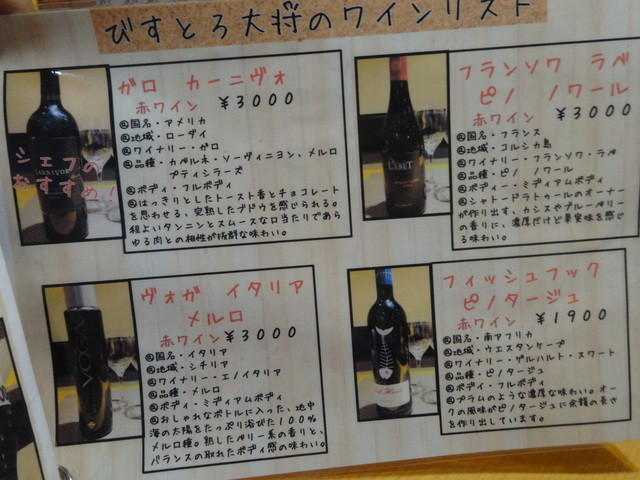 びすとろ大将のワインリスト
シェフの
おすすめ!
ガロ カーニヴォ
赤ワイン ¥3000
@国名・アメリカ
@地域・ローダイ
@ワイナリー・ガロ
@品種・カベルネ・ソーヴィニヨン、メルロ
プティシラーズ
@ボディ・フルボディ
@はっきりとしたトースト香とチョコレート
を思わせる、完熟したブドウを感じられる。
程よいタンニンとスムースな口当たりであら
ゆる肉との相性が抜群な味わい。
フランソワ ラベ
ピノ ノワール
赤ワイン ¥3000
@国名・フランス
@地域・コルシカ島
@ワイナリー・フランソワ・ラベ
@品種・ピノ ノワール
@ボディー・ミディアムボディ
@シャトードラトゥールのオーナー
が作り出す、カシスやブルーベリー
の香りに、濃厚だけど果実味を感じ
る味わい。
LABET
ヴォガ イタリア
メルロ
赤ワイン ¥3000
@国名・イタリア
@地域・シチリア
@ワイナリー・エノイタリア
@品種・メルロ
@ボディ・ミディアムボディ
@おしゃれなボトルに入った、地中
海の太陽をたっぷり浴びた100%
メルロ種。熟したベリー系の香りと、
バランスの取れたボディ感の味わい。
VOGA
フィッシュフック
ピノタージュ
赤ワイン ¥1900
@国名・南アフリカ
@地域・ウエスタンケープ
@ワイナリー・ゲルハルト・スワート
@品種・ピノタージュ
@ボディ・フルボディ
@プラムのような濃厚な味わい。オー
クの風味がピノタージュに余韻の長さ
を作り出しています。